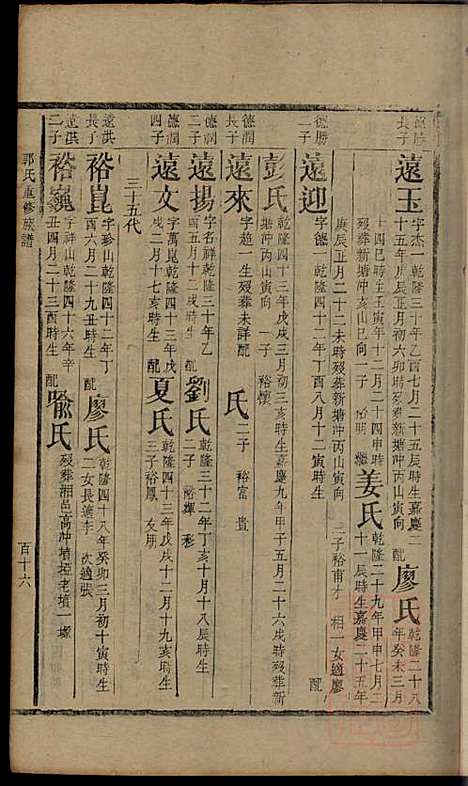 德勝長子
遠玉 字杰一乾隆三十年乙酉七月二十五辰時生嘉慶二十五年庚辰正月初六卯時歿葬新塘冲丙山寅向 配
廖氏 乾隆二十八年癸未三月十四巳時生壬寅年十二月二十四申時歿葬新塘冲亥山巳向 一子 裕明 繼
姜氏 乾隆二十九年甲申七月二十一辰時生嘉慶二十五年庚辰正月二十二未時歿葬新塘冲丙山寅向 三子裕甫 才 相 一女適廖
德勝二子
遠迎 字德一乾隆四十二年丁酉八月十二寅時生 配
彭氏 乾隆四十三年戊戌三月初三亥時生嘉慶九年甲子五月二十六戌時歿葬新塘冲丙山寅向 一子 裕懷
德潤長子
遠來 字超一生歿葬未詳配 氏 二子 裕富 貴
德潤二子
遠揚 字名祥乾隆三十年乙酉五月十二戌時生 配
劉氏 乾隆三十二年丁亥十月十八辰時生 二子 裕輝 彩
德潤四子
遠文 字萬崑乾隆四十三年戊戌二月十七亥時生 配
夏氏 乾隆四十三年戊戌十二月十九亥時生 三子裕鳳 友 朋
三十五代
遠祺長子
裕崑 字珍山乾隆四十二年丁酉六月二十九丑時生 配
廖氏 乾隆四十八年癸卯三月初十寅時生 二女長適李 次適張
遠祺二子
裕巍 字祥山乾隆四十六年辛丑四月二十三酉時生 配
喩氏 歿葬湘邑高冲墳埡老墳一塚
郭氏重修族譜
百十六